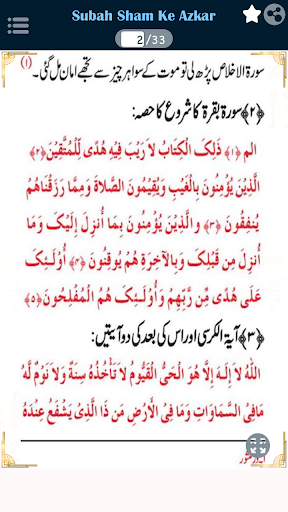 Subah Sham Ke Azkar
2/33
سورۃ الاخلاص پڑھ لی تو موت کے سوا ہر چیز سے تجھے امان مل گئی۔ (۱)
﴿۲﴾ سورۃ بقرۃ کا شروع کا حصہ:
الم ﴿۱﴾ ذَلِكَ الْكِتَابُ لاَ رَيْبَ فِيهِ هُدًى لِّلْمُتَّقِينَ ﴿۲﴾
الَّذِينَ يُؤْمِنُونَ بِالْغَيْبِ وَيُقِيمُونَ الصَّلاةَ وَمِمَّا رَزَقْنَاهُمْ
يُنفِقُونَ ﴿۳﴾ والَّذِينَ يُؤْمِنُونَ بِمَا أُنزِلَ إِلَيْكَ وَمَا
أُنزِلَ مِن قَبْلِكَ وَبِالآخِرَةِ هُمْ يُوقِنُونَ ﴿۴﴾ أُوْلَـئِكَ
عَلَى هُدًى مِّن رَّبِّهِمْ وَأُوْلَـئِكَ هُمُ الْمُفْلِحُونَ ﴿۵﴾
﴿۳﴾ آیۃ الکرسی اور اس کی بعد کی دو آیتیں:
اللّهُ لاَ إِلَـهَ إِلاَّ هُوَ الْحَيُّ الْقَيُّومُ لاَ تَأْخُذُهُ سِنَةٌ وَلاَ نَوْمٌ لَّهُ
مَا فِي السَّمَاوَاتِ وَمَا فِي الأَرْضِ مَن ذَا الَّذِي يَشْفَعُ عِنْدَهُ